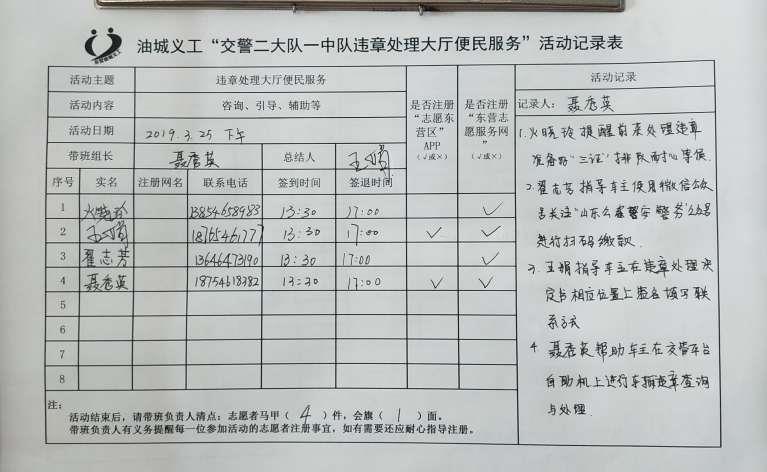 油城义工“交警二大队一中队违章处理大厅便民服务”活动记录表
活动主题 违章处理大厅便民服务
活动内容 咨询、引导、辅助等
活动日期 2019.3.25 下午
带班组长 聂秀英 总结人 王娟
是否注册“志愿东营区”APP（√或×）
是否注册“东营志愿服务网”（√或×）
序号 实名 注册网名 联系电话 签到时间 签退时间
1 火晓玲 13854658983 13:30 17:00 √
2 王娟 18765461777 13:30 17:00 √ √
3 翟志芳 13646473190 13:30 17:00 √
4 聂秀英 18754618382 13:30 17:00 √ √
5
6
7
8
活动记录
记录人：聂秀英
1.火晓玲提醒前来处理违章
准备好“三证”排队耐心等候.
2.翟志芳指导车主使用微信公众
号关注“山东公安 警务”公众号
进行扫码缴款.
3.王娟指导车主在违章处理决
定书相应位置上签名填写联
系方式
4.聂秀英帮助车主在交管平台
自助机上进行车辆违章查询
与处理.
注：
活动结束后，请带班负责人清点：志愿者马甲（ 4 ）件，会旗（ 1 ）面。
带班负责人有义务提醒每一位参加活动的志愿者注册事宜，如有需要还应耐心指导注册。